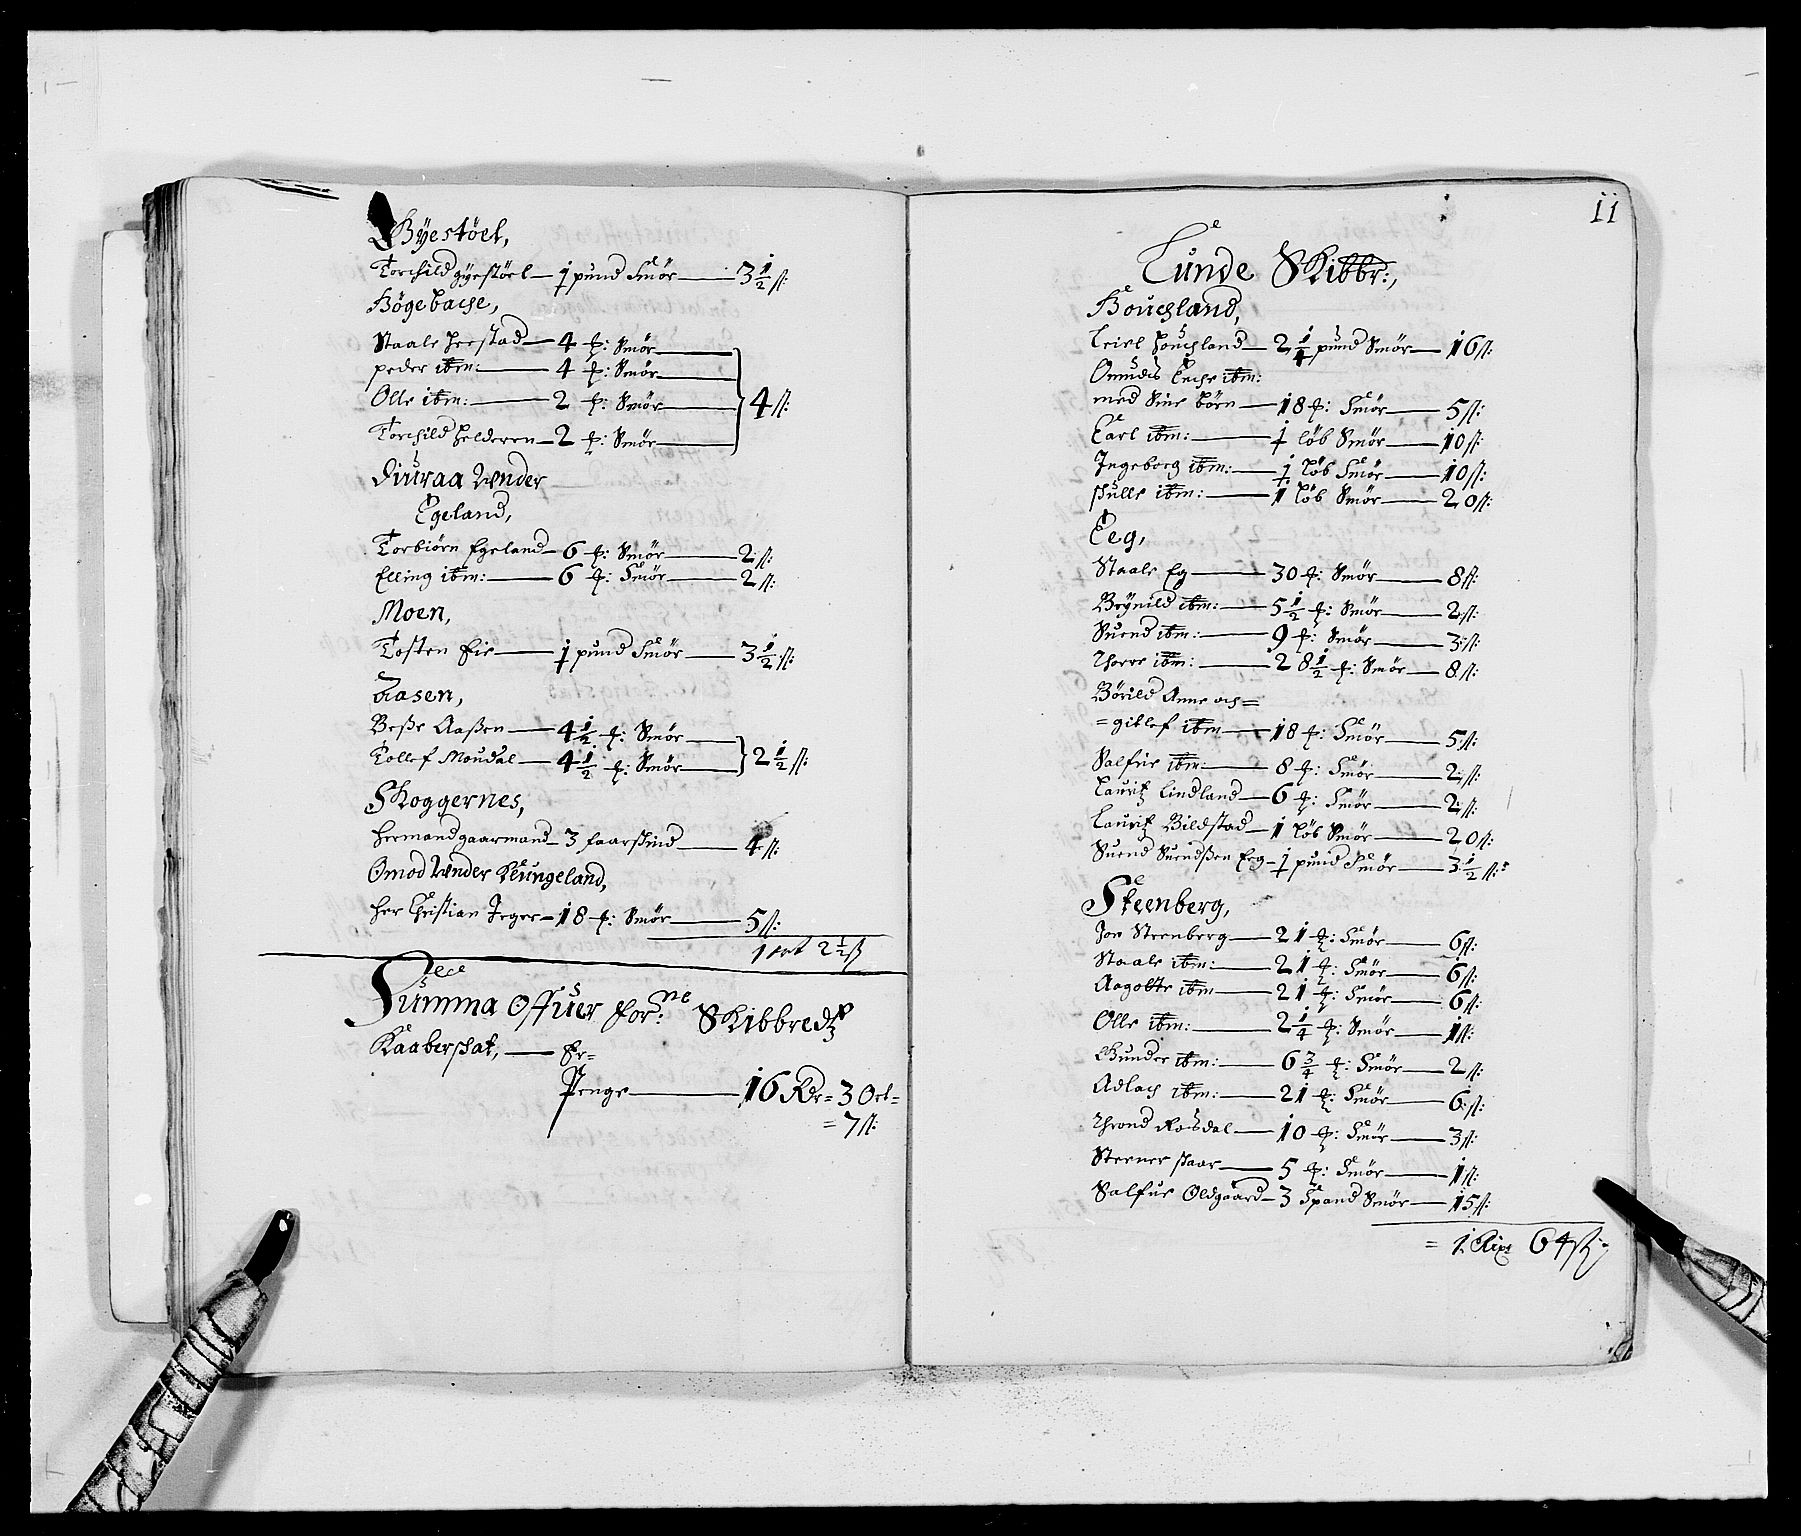 Gyestöel,
Torchild gyestöel — ½ pund Smör — 3½ ß:
Högebache,
Staale Heestad — 4 ℔: Smör
peder ibm: — 4 ℔: Smör
Olle ibm: — 2 ℔: Smör — 4 ß:
Torchild Helderen — 2 ℔: Smör
Diuraa Wnder
Egeland,
Torbiörn Egeland — 6 ℔: Smör — 2 ß:
Elling ibm: — 6 ℔: Smör — 2 ß:
Moen,
Tosten Eie — ½ pund Smör — 3½ ß:
Aasen,
Beße Aaßen — 4½ ℔: Smör
Tollef Moudal — 4½ ℔: Smör — 2½ ß:
Skoggernes,
Hermand gaarmand — 3 faarskind — 4 ß:
Omod Wnder KLungeland,
Her Christian Jeger — 18 ℔: Smör — 5 ß:
1 ort 2½ ß
Summa Offuer for:ne Skibbredtz
Kaaberskat, — Er=
Penge — 16 Rdr= 3 Ort=
= 7 ß:
11
Lunde Skibbr:,
Houchland,
Leiel Houchland — 2¼ pund Smör — 16 ß:
Omuds Enche ibm:
med Sine börn — 18 ℔: Smör — 5 ß:
Carl ibm: — ½ löb Smör — 10 ß:
Ingeborg ibm: — ½ löb Smör — 10 ß:
skulle ibm: — 1 löb Smör — 20 ß:
Eeg,
Staale Eg — 30 ℔: Smör — 8 ß:
Brynild ibm: — 5½ ℔: Smör — 2 ß:
Suend ibm: — 9 ℔: Smör — 3 ß:
Thore ibm: — 28½ ℔: Smör — 8 ß:
Börild Anne och=
=gitlef ibm — 18 ℔: Smör — 5 ß:
Salfue ibm: — 8 ℔: Smör — 2 ß:
Lauritz Lindland — 6 ℔: Smör — 2 ß:
Lauritz Bildstad — 1 löb Smör — 20 ß:
Suend Suendßen Eeg — ½ pund Smör — 3½ ß:
Steenberg,
Jon Steenberg — 21 ℔: Smör — 6 ß:
Staale ibm: — 21 ℔: Smör — 6 ß:
Aagotte ibm — 21 ℔: Smör — 6 ß:
Olle ibm: — 2¼ ℔: Smör — 1 ß:
Gunder ibm: — 6¾ ℔: Smör — 2 ß:
Adlach ibm: — 21 ℔: Smör — 6 ß:
Thrond Rosdal — 10 ℔: Smör — 3 ß:
Steener skaar — 5 ℔: Smör — 1 ß:
Salfue Oldgaard — 3 Spand Smör — 15 ß:
= 1 Rixr 64 ß